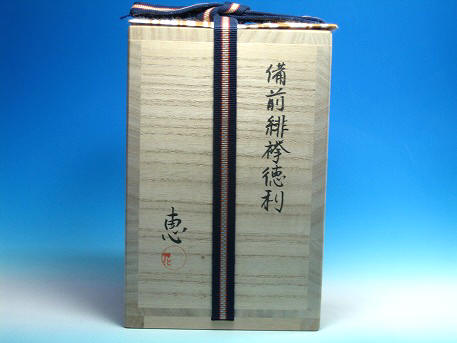 備前緋襷徳利
恵